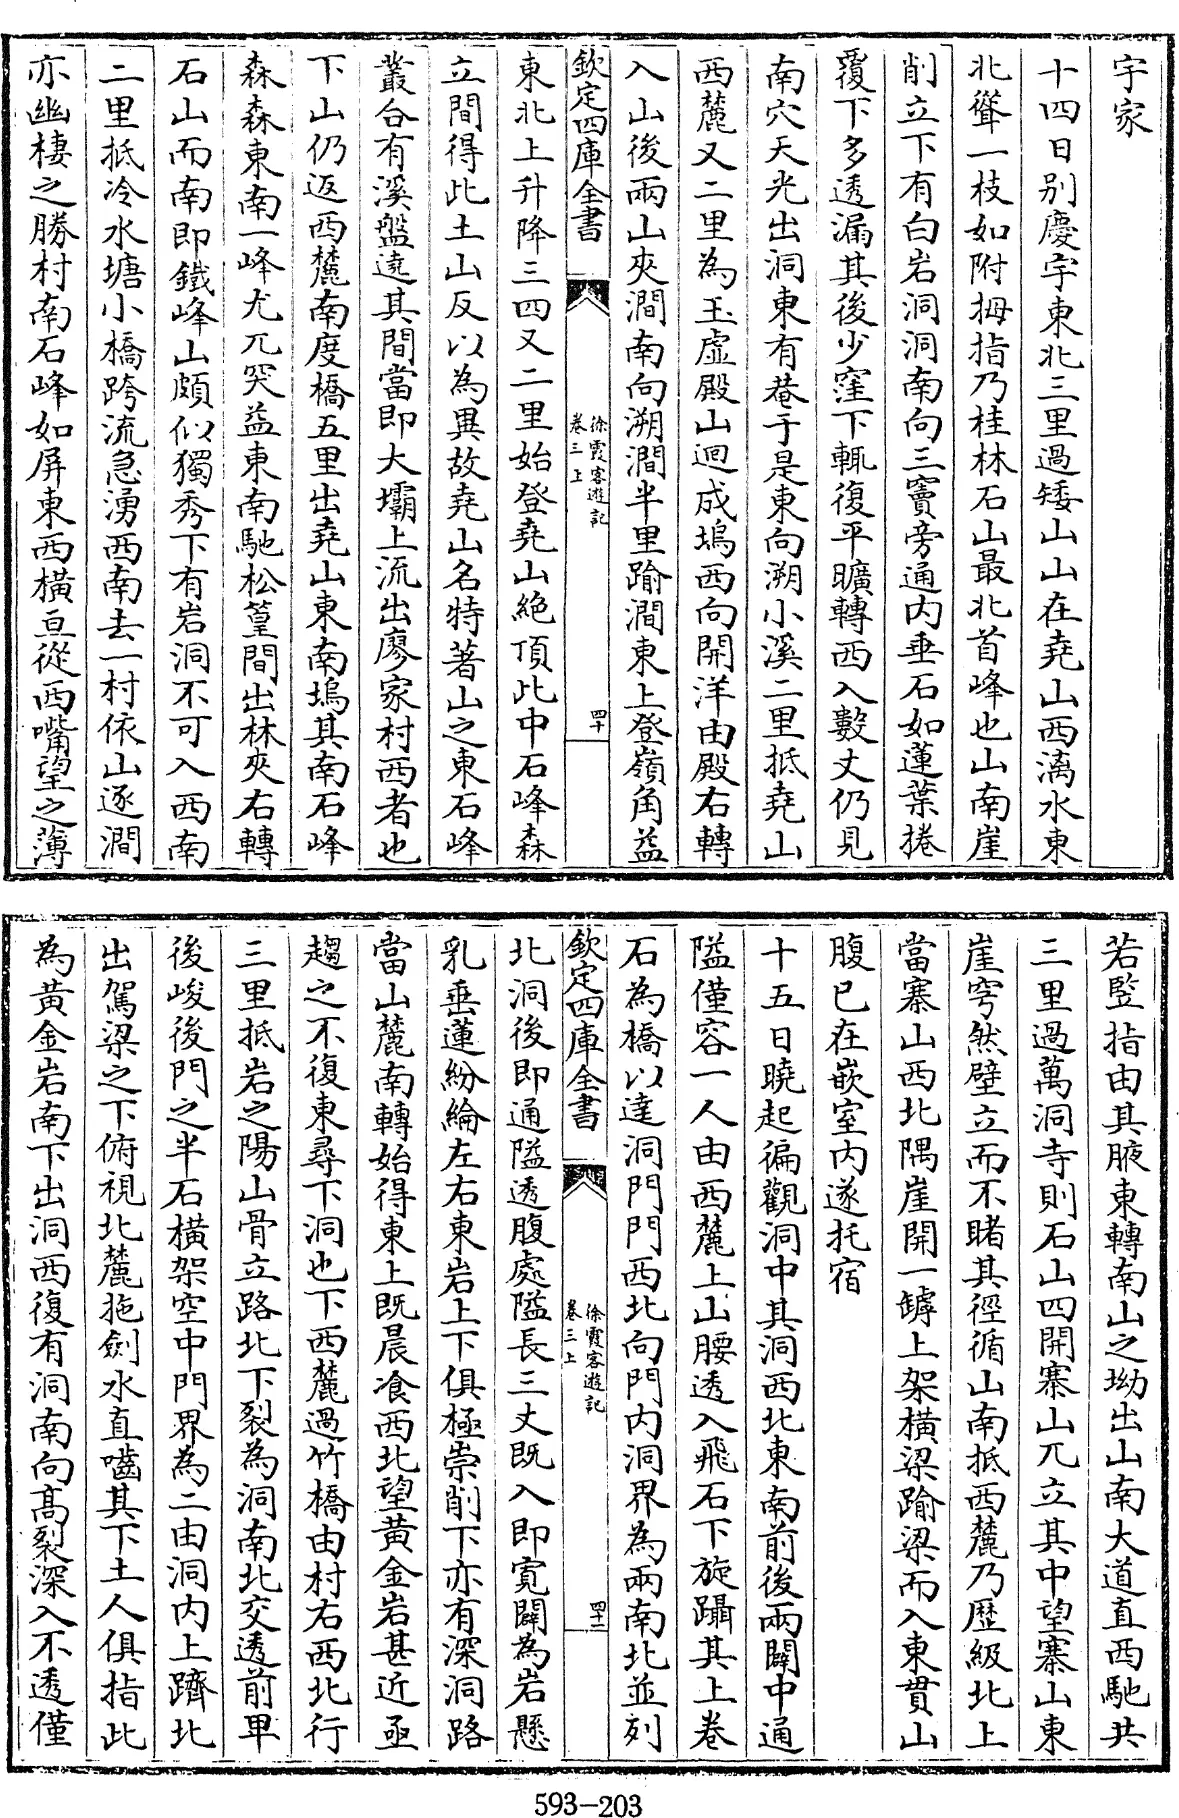 宇家
十四日别慶宇東北三里過矮山山在堯山西漓水東
北聳一枝如附拇指乃桂林石山最北首峰也山南崖
削立下有白岩洞洞南向三竇旁通内垂石如蓮葉捲
覆下多透漏其後少窪下輒復平曠轉西入數丈仍見
南穴天光出洞東有菴于是東向溯小溪二里抵堯山
西麓又二里為玉虛殿山迴成塢西向開洋由殿右轉
入山後兩山夾澗南向溯澗半里踰澗東上登嶺角益
欽定四庫全書
徐霞客遊記
卷三上
四十
東北上升降三四又二里始登堯山絶頂此中石峰森
立間得此土山反以為異故堯山名特著山之東石峰
叢合有溪盤遶其間當即大壩上流出廖家村西者也
下山仍返西麓南度橋五里出堯山東南塢其南石峰
森森東南一峰尤兀突益東南馳松篁間出林夾右轉
石山而南即鐵峰山頗似獨秀下有岩洞不可入西南
二里抵冷水塘小橋跨流急湧西南去一村依山逐澗
亦幽棲之勝村南石峰如屏東西横亘從西嘴望之薄
若竪指由其腋東轉南山之坳出山南大道直西馳共
三里過萬洞寺則石山四開寨山兀立其中望寨山東
崖穹然壁立而不睹其徑循山南抵西麓乃歷級北上
當寨山西北隅崖開一罅上架横梁踰梁而入東貫山
腹已在嵌室内遂托宿
十五日曉起徧觀洞中其洞西北東南前後兩闢中通
隘僅容一人由西麓上山腰透入飛石下旋躡其上卷
石為橋以達洞門門西北向門内洞界為兩南北並列
欽定四庫全書
徐霞客遊記
卷三上
四十一
北洞後即通隘透腹處隘長三丈既入即寛闢為岩懸
乳垂蓮紛綸左右東岩上下俱極崇削下亦有深洞路
當山麓南轉始得東上既晨飡西北望黄金岩甚近亟
趨之不復東尋下洞也下西麓過竹橋由村右西北行
三里抵岩之陽山骨立路北下裂為洞南北交透前卑
後峻後門之半石横架空中門界為二由洞内上躋北
出駕梁之下俯視北麓拖劍水直嚙其下土人俱指此
為黄金岩南下出洞西復有洞南向高裂深入不透僅
593–203